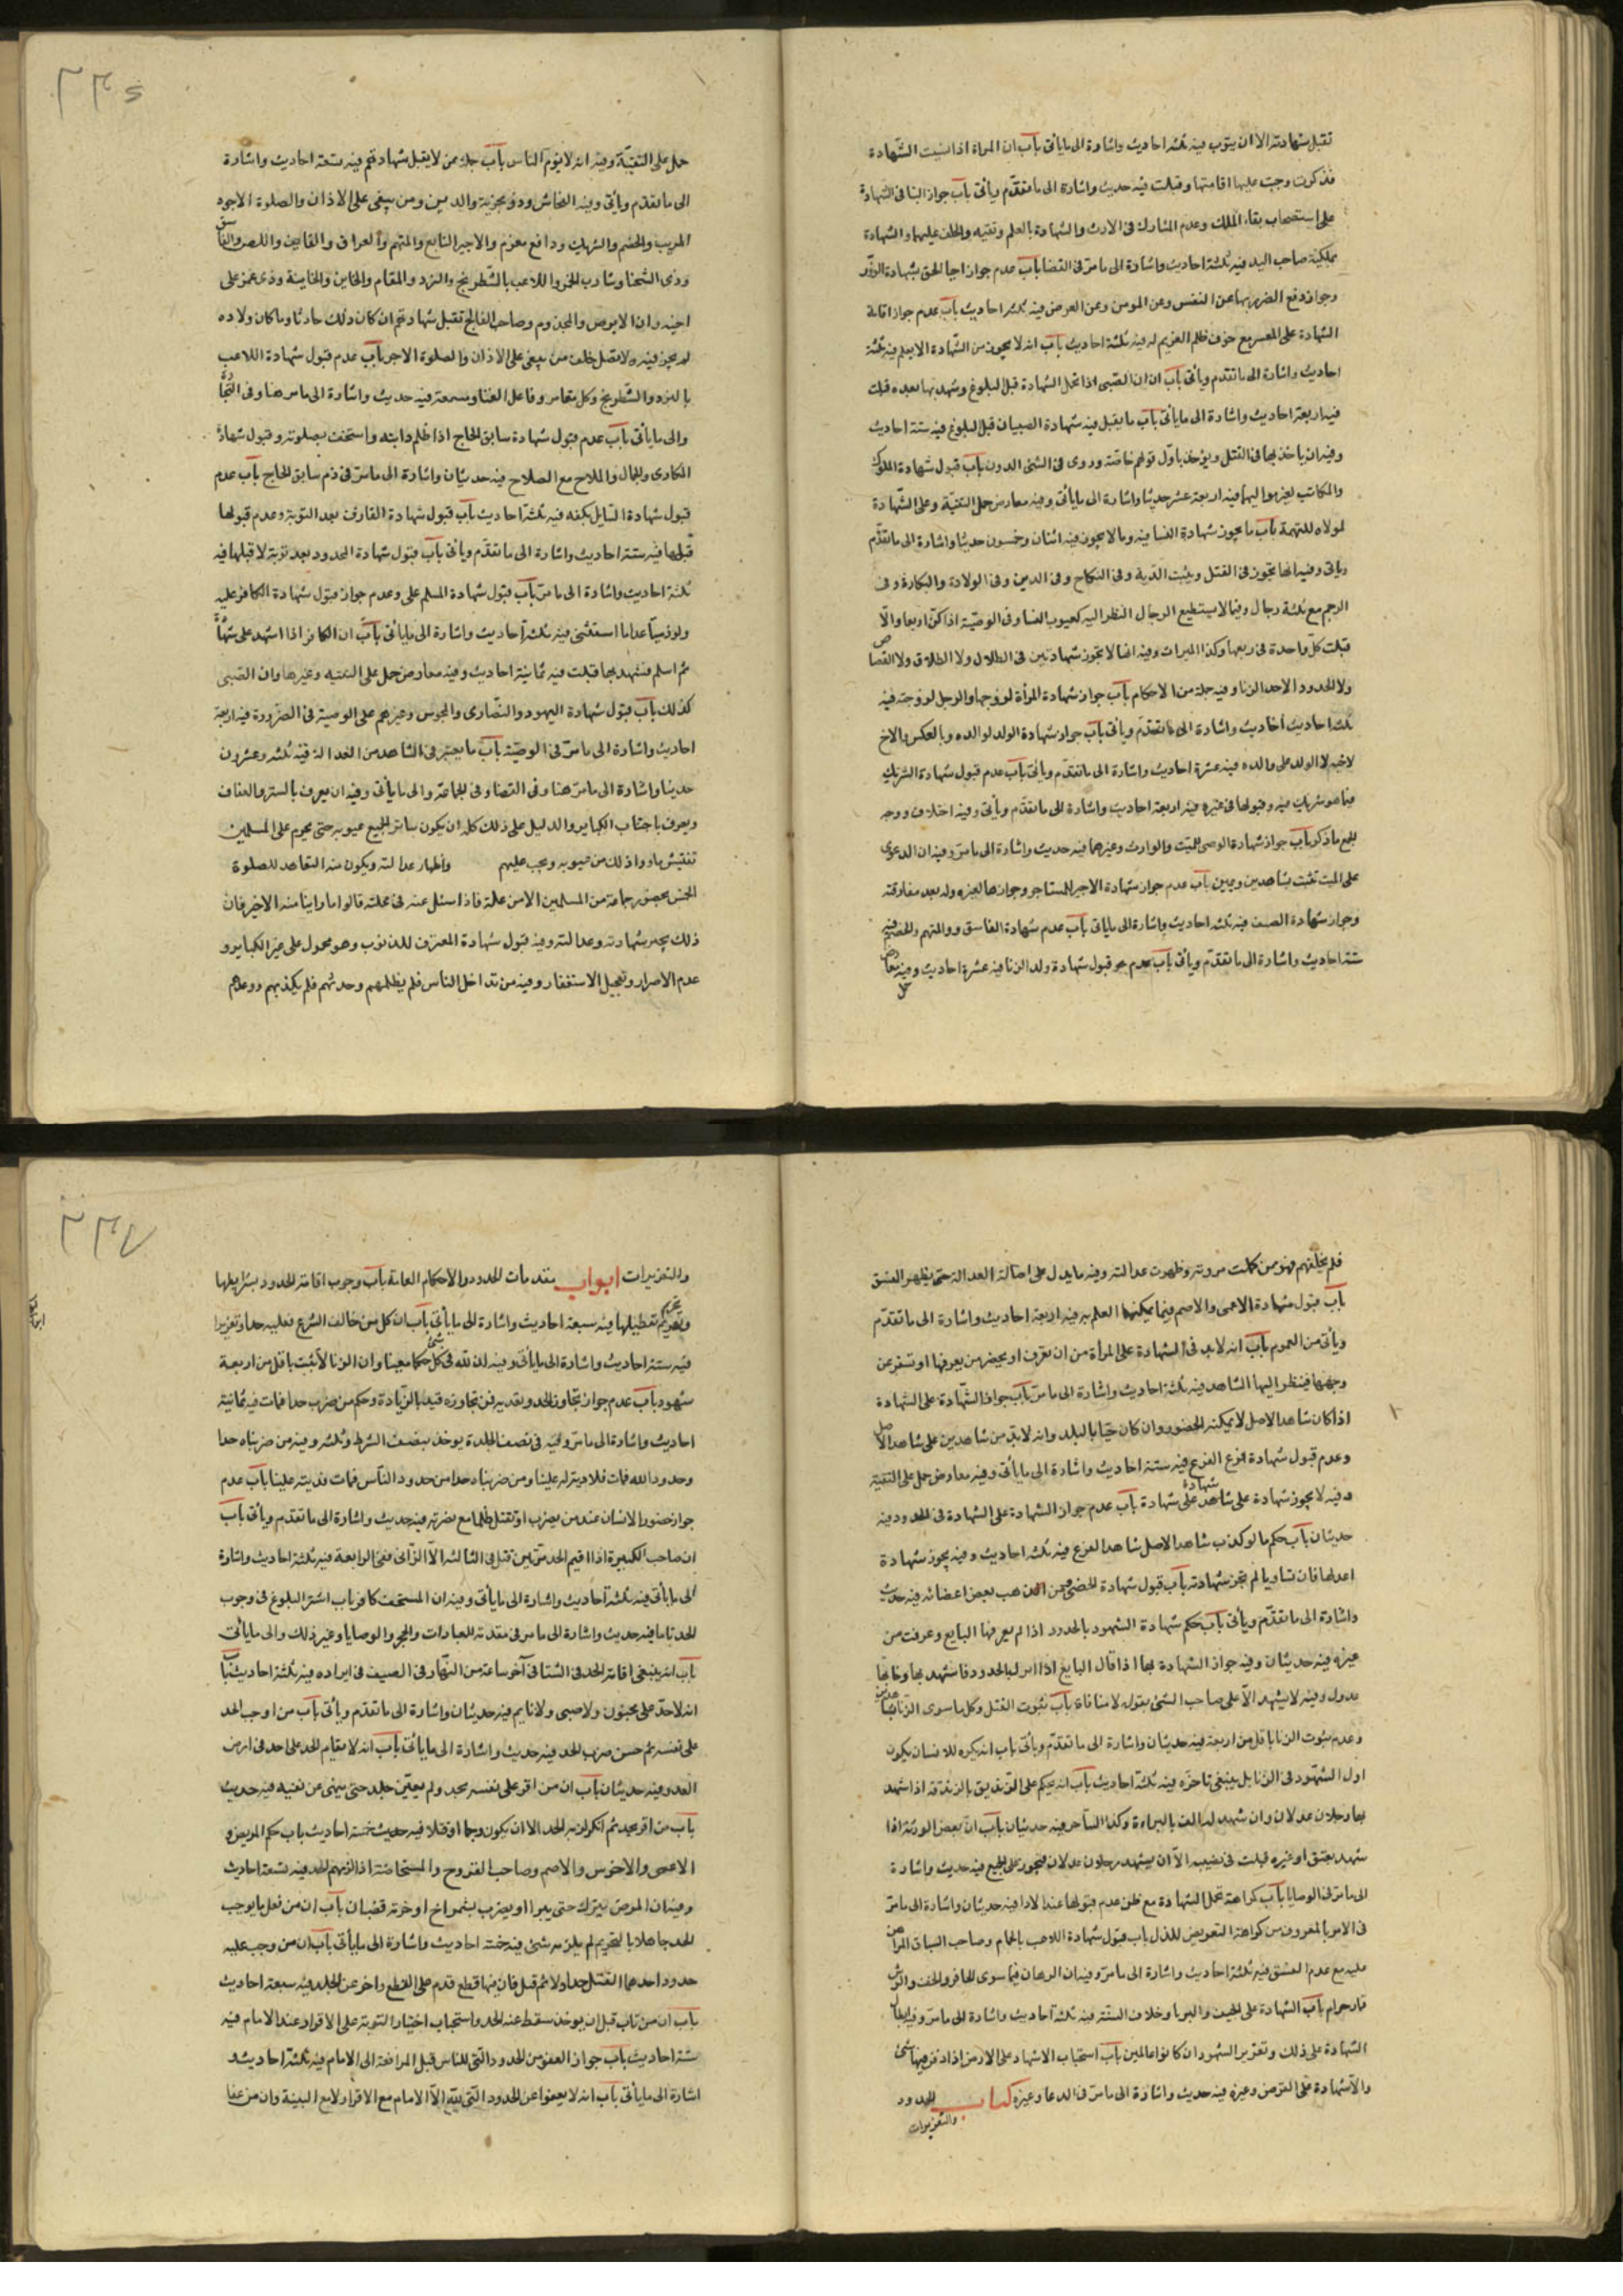 تقبل شهادته الا ان يتوب فيه ثلثة احاديث واشارة الى ما ياتى باب ان المراة اذا نسيت الشهادة
فذكرت وجبت عليها اقامتها وقبلت فيه حديث واشارة الى ما تقدم وياتى باب جواز البنا فى الشهادة
على استصحاب بقاء الملك وعدم المشارك فى الارث والشهادة بالعلم ونفيه والحلف عليهما والشهادة
بملكية صاحب اليد فيه ثلثة احاديث واشارة الى ما مر فى القضا باب عدم جواز احيا الحق بشهادة الزور
وجواز دفع الضرر بها عن النفس وعن المومن وعن العرض فيه ثلثة احاديث باب عدم جواز اقامة
الشهادة على المعسر مع خوف ظلم الغريم له فيه ثلثة احاديث باب انه لا يجوز من الشهادة الا بعلم فيه ثلثة
احاديث واشارة الى ما تقدم وياتى باب ان الصبى اذا تحمل الشهادة قبل البلوغ وشهد بها بعده قبلت
فيه اربعة احاديث واشارة الى ما ياتى باب ما يقبل فيه شهادة الصبيان قبل البلوغ فيه ستة احاديث
وفيه ان ياخذ بها فى القتل ويوخذ باول قولهم خاصة وروى فى الشئ الدون باب قبول شهادة الملوك
والمكاتب لغير مواليهما فيه اربعة عشر حديثا واشارة الى ما ياتى وفيه معارض حمل التقية وعلى الشهادة
لمولاه للتهمة باب ما يجوز شهادة النسا فيه وما لا يجوز فيه اثنان وخمسون حديثا واشارة الى ما تقدم
وياتى وفيه انها تجوز فى القتل ويثبت الدية وفى النكاح وفى الدين وفى الولادة والبكارة وفى
الرجم مع ثلثة رجال وفيما لا يستطيع الرجال النظر اليه كعيوب النسا وفى الوصية اذا كن اربعا والا
قبلت كل واحدة فى ربعها وكذا الميراث وفيه انها لا تجوز شهادتين فى الهلال ولا الطلاق ولا القصاص
ولا الحدود الا حد الزنا وفيه جملة من الاحكام باب جواز شهادة المرأة لزوجها والرجل لزوجته فيه
ثلثة احاديث واشارة الى ما تقدم وياتى باب جواز شهادة الولد لوالده وبالعكس والاخ
لاخيه لا الولد على والده فيه عشرة احاديث واشارة الى ما تقدم وياتى باب عدم قبول شهادة الشريك
فيما هو شريك فيه وقبولها فى غيره فيه اربعة احاديث واشارة الى ما تقدم وياتى وفيه اختلاف ووجه
الجمع ما ذكر باب جواز شهادة الوصى للميت والوارث وغيرهما فيه حديث واشارة الى ما مر وفيه ان الدعوى
على الميت تثبت بشاهدين ويمين باب عدم جواز شهادة الاجير للمستاجر وجوازها لغيره وله بعد مفارقته
وجواز شهادة الضيف فيه ثلثة احاديث واشارة الى ما ياتى باب عدم شهادة الفاسق والمتهم والخصم فيه
ستة احاديث واشارة الى ما تقدم وياتى باب عدم قبول شهادة ولد الزنا فيه عشرة احاديث وفيه معارض
حمل
٢٣٤
حمل على التقية وفيه انه لا يؤم الناس باب جملة ممن لا يقبل شهادتهم فيه تسعة احاديث واشارة
الى ما تقدم وياتى وفيه الفحاش وذو مخزية والدين ومن يبغى على الاذان والصلوة الاجر
المريب والخصم والشريك ودافع مغرم والاجير التابع والمتهم والعراف والقايف واللص والفاسق
وذى الشحنا وشارب الخمر واللاعب بالشطرنج والنرد والمقام والخاين والخاينة وذى غمز على
اخيه وان الابرص والمجذوم وصاحب الفالج تقبل شهادتهم ان كان ذلك حادثا وما كان ولاده
لم يجز فيه ولا تصل خلف من يبغى على الاذان والصلوة الاجر باب عدم قبول شهادة اللاعب
بالنرد والشطرنج وكل مقامر وفاعل الغنا ومستمعه فيه حديث واشارة الى ما مر هنا وفى التجارة
والى ما ياتى باب عدم قبول شهادة سابق الحاج اذا ظلم دابته واستخف بصلوته وقبول شهادة
المكارى والجمال والملاح مع الصلاح فيه حديثان واشارة الى ما مر فى ذم سابق الحاج باب عدم
قبول شهادة السايل بكفه فيه ثلثة احاديث باب قبول شهادة القاذف بعد التوبة وعدم قبولها
قبلها فيه ستة احاديث واشارة الى ما تقدم وياتى باب قبول شهادة المحدود بعد توبته لا قبلها فيه
ثلثة احاديث واشارة الى ما مر باب قبول شهادة المسلم على وعدم جواز قبول شهادة الكافر عليه
ولو ذميا عدا ما استثنى فيه ثلثة احاديث واشارة الى ما ياتى باب ان الكافر اذا اشهد على شهادة
ثم اسلم فشهد بها قبلت فيه ثمانية احاديث وفيه معارض حمل على التقيه وغيرها وان الصبى
كذلك باب قبول شهادة اليهود والنصارى والمجوس وغيرهم على الوصية فى الضرورة فيه اربعة
احاديث واشارة الى ما مر فى الوصية باب ما يعتبر فى الشاهد من العدالة فيه ثلثه وعشرون
حديثا واشارة الى ما مر هنا وفى القضا وفى الجماعة والى ما ياتى وفيه ان يعرف بالستر والعفاف
ويعرف باجتناب الكباير والدليل على ذلك كله ان يكون ساترا لجميع عيوبه حتى يحرم على المسلمين
تفتيش ماورا ذلك من عيوبه ويجب عليهم واظهار عدالته ويكون منه التعاهد للصلوة
الخمس بحضور جماعة من المسلمين الا من علة فاذا سئل عنه فى محلته قالوا ما راينا منه الا خير فان
ذلك يجيز شهادته وعدالته وفيه قبول شهادة المعترف للذنوب وهو محمول على غير الكباير و
عدم الاصرار وتعجيل الاستغفار وفيه من تداخل الناس فلم يظلمهم وحدثهم فلم يكذبهم ووعدهم
فلم يخلفهم فهو ممن كملت مروته وظهرت عدالته وفيه ما يدل على اصالة العدالة حتى يظهر الفسق
باب قبول شهادة الاعمى والاصم فيما يمكنهما العلم به فيه اربعة احاديث واشارة الى ما تقدم
وياتى من العموم باب انه لا بد فى الشهادة على المرأة من ان تعرف او يحضر من يعرفها او تسفر عن
وجهها فينظر اليها الشاهد فيه ثلثة احاديث واشارة الى ما مر باب جواز الشهادة على الشهادة
اذا كان شاهد الاصل لا يمكنه الحضور وان كان حيا بالبلد وانه لا بد من شاهدين على شاهد الاصل
وعدم قبول شهادة فرع الفرع فيه ستة احاديث واشارة الى ما ياتى وفيه معارض حمل على التقية
وفيه لا يجوز شهادة على شاهد على شهادة باب عدم جواز الشهادة على الشهادة فى الحدود فيه
حديثان باب حكم ما لو كذب شاهد الاصل شاهد الفرع فيه ثلثه احاديث وفيه يجوز شهادة
اعدلها فان تساويا لم تجز شهادته باب قبول شهادة الخصى ومن ذهب بعض اعضائه فيه حديث
واشارة الى ما تقدم وياتى باب حكم شهادة الشهود بالحدود اذا لم يعرفها البايع وعرفت من
غيره فيه حديثان وفيه جواز الشهادة بها اذا قال البايع اذا امر لها بالحدود فاشهد بها
عدول وفيه لا يشهد الا على صاحب الشئ بقوله لا منافاة باب ثبوت القتل وكل ما سوى الزنا بشاهدين
وعدم ثبوت الزنا باقل من اربعة فيه حديثان واشارة الى ما تقدم وياتى باب انه يكره للانسان يكون
اول الشهود فى الزنا بل ينبغى تاخره فيه ثلثة احاديث باب انه يحكم على الزنديق بالزندقة اذا شهد
بها رجلان عدلان وان شهد له الف بالبراءة وكذا الساحر فيه حديثان باب ان بعض الورثة اذا
شهد بعتق او غيره قبلت فى نصيبه الا ان يشهد رجلان عدلان فيجوز على الجميع فيه حديث واشارة
الى ما مر فى الوصايا باب كراهة تحمل الشهادة مع ظن عدم قبولها عند الادا فيه حديثان واشارة الى ما مر
فى الامر بالمعروف من كراهة التعرض للذل باب قبول شهادة اللاعب بالحمام وصاحب السباق المراهن
عليه مع عدم الفسق فيه ثلثة احاديث واشارة الى ما مر وفيه ان الرهان فيما سوى الحافر والخف والريش
قمار حرام باب الشهادة على الحيف والربا وخلاف السنة فيه ثلثة احاديث واشارة الى ما مر وفيه ابطال
الشهادة على ذلك وتعزير الشهود ان كانوا عالمين باب استحباب الاشهاد على الارض اذا دفن فيها شئ
والاشهادة على القرض وغيره فيه حديث واشارة الى ما مر فى الدعا وغيره كتاب الحدود
والتعزيرات
٢٣٧
والتعزيرات ابواب مقدمات الحدود والاحكام العامة باب وجوب اقامة الحدود بشرايطها
وتحريم تعطيلها فيه سبعة احاديث واشارة الى ما ياتى باب ان كل من خالف الشرع فعليه حد او تعزير
فيه ستة احاديث واشارة الى ما ياتى وفيه ان لله فى كل شئ حكما معينا وان الزنا لا يثبت باقل من اربعة
شهود باب عدم جواز تجاوز الحد وتعديه فمن تجاوزه قيد بالزيادة وحكم من ضرب حدا فمات فيه ثمانية
احاديث واشارة الى ما مر وفيه فى نصف الجلدة يوخذ بنصف السوط وثلثه وفيه من ضربناه حدا
وحدود الله فمات فلا دية له علينا ومن ضربناه حدا من حدود الناس فمات فديته علينا باب عدم
جواز حضور الانسان عند من يضرب او يقتل ظلما مع نصرته فيه حديث واشارة الى ما تقدم وياتى باب
ان صاحب الكبيرة اذا اقيم الحد مرتين قتل فى الثالثة الا الزانى ففى الرابعة فيه ثلثة احاديث واشارة
الى ما ياتى فيه ثلثة احاديث واشارة الى ما ياتى وفيه ان المستخف كافر باب اشتراط البلوغ فى وجوب
الحد تاما فيه حديث واشارة الى ما مر فى مقدمة العبادات والحجر والوصايا وغير ذلك والى ما ياتى
باب انه ينبغى اقامة الحد فى الشتا فى آخر ساعة من النهار وفى الصيف فى ابراده فيه ثلثة احاديث باب
انه لا حد على مجنون ولا صبى ولا نايم فيه حديثان واشارة الى ما تقدم وياتى باب من اوجب الحد
على نفسه ثم جن ضرب الحد فيه حديث واشارة الى ما ياتى باب انه لا يقام الحد على احد فى ارض
العدو فيه حديثان باب ان من اقر على نفسه بحد ولم يعين جلد حتى ينهى عن نفسه فيه حديث
باب من اقر بحد ثم انكر لزمه الحد الا ان يكون رجما او قتلا فيه خمسة احاديث باب حكم المريض و
الاعمى والاخرس والاصم وصاحب القروح والمستحاضة اذا لزمهم الحد فيه تسعة احاديث
وفيه ان المريض يترك حتى يبرا او يضرب بشمراخ او حزمة قضبان باب ان من فعل ما يوجب
الحد جاهلا بالتحريم لم يلزمه شئ فيه خمسة احاديث واشارة الى ما ياتى باب ان من وجب عليه
حدود احدها القتل حد اولا ثم قتل فان فيها قطع قدم على القطع واخر عن الجلد فيه سبعة احاديث
باب ان من تاب قبل ان يوخذ سقط عنه الحد واستحباب اختيار التوبة على الاقرار عند الامام فيه
ستة احاديث باب جواز العفو من الحدود التى للناس قبل المرافعة الى الامام فيه ثلثة احاديث و
اشارة الى ما ياتى باب انه لا يعفو عن الحدود التى لله الا الامام مع الاقرار لا مع البينة وان من عفا